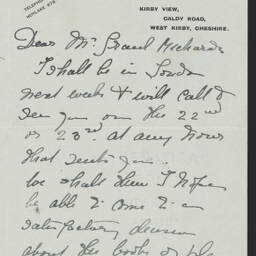 TELEPHONE
HOYLAKE 978
KIRBY VIEW,
CALDY ROAD,
WEST KIRBY, CHESHIRE.
Dear Mr. Grant Richards
I shall be in London
next week & will call &
see you on the 22nd
or 23rd at any hour
that suits you.
We shall then I hope
be able to come to a
satisfactory decision
about the books of